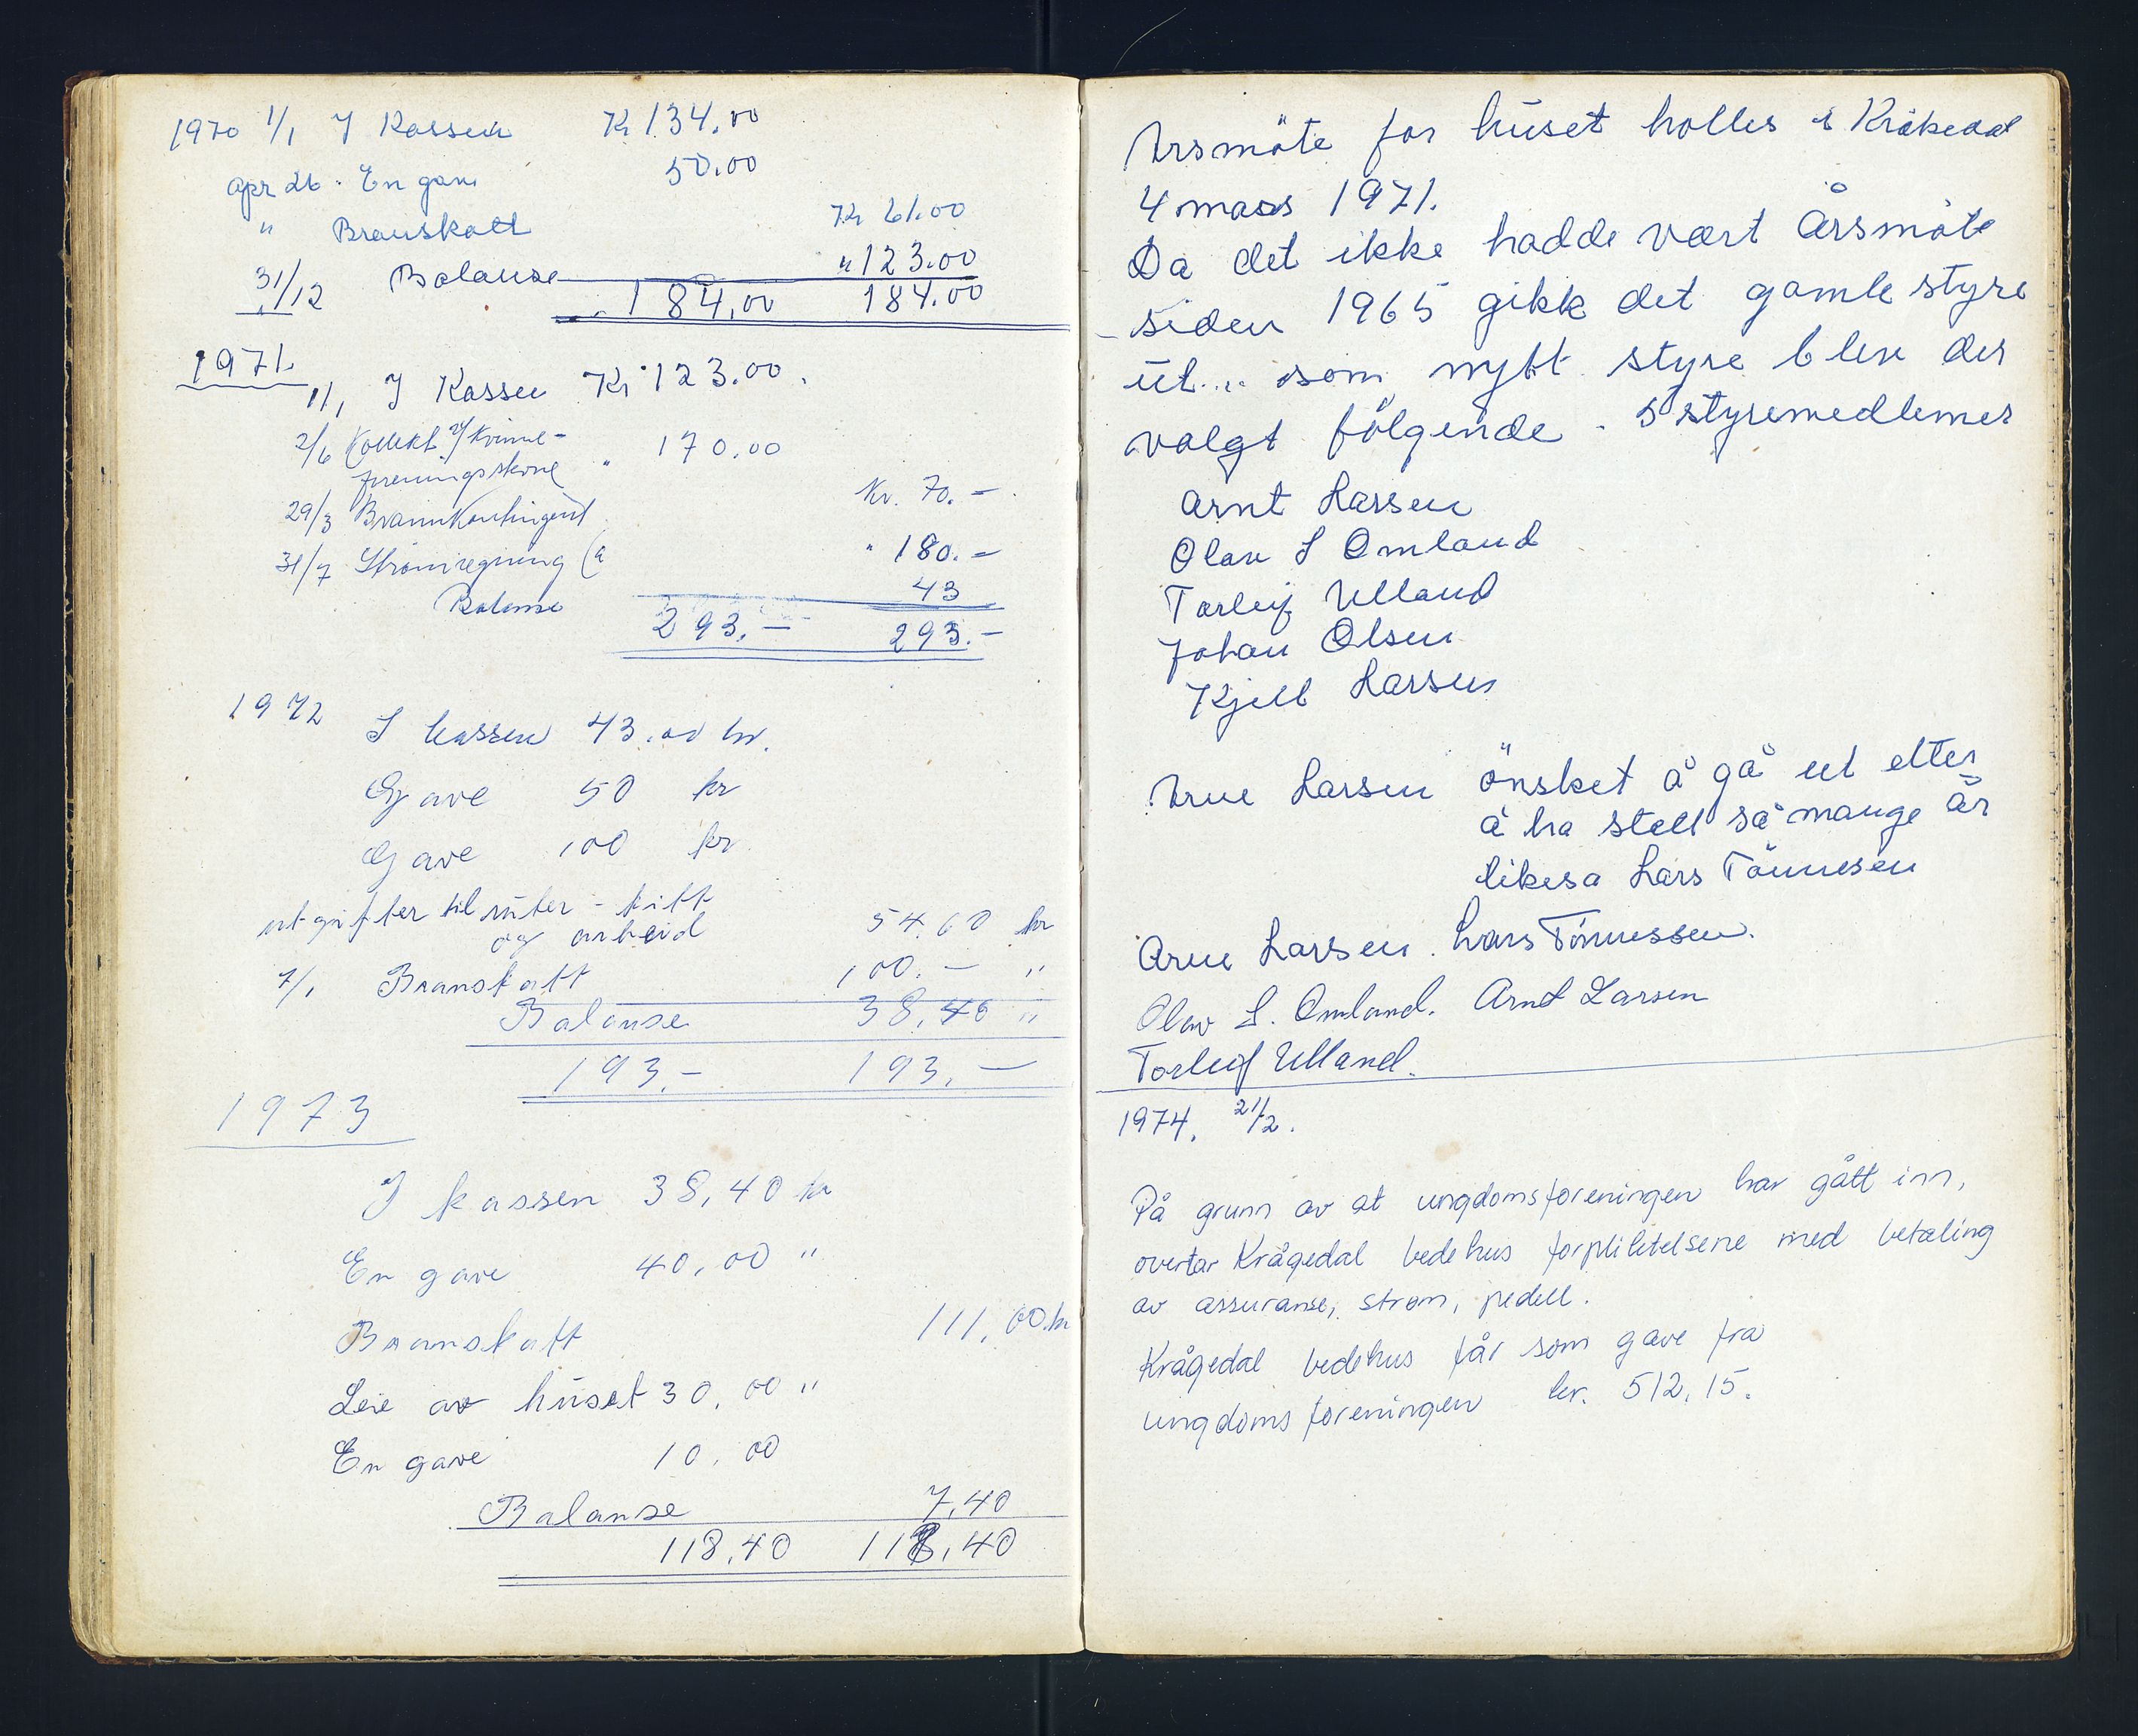 1970 1/1 I Kassen Kr 134.00
Apr 26. En gave 50.00
" Branskatt Kr 61.00
31/12 Balanse " 123.00
184,00 184.00
1971.
1/1, I Kassen Kr 123.00.
2/6 Kollekt v/ Kvinne-
foreningsskne " 170.00
29/3 Brannkontingent Kr. 70.-
31/7 Strømregning " 180.-
Balanse 43
293.- 293.-
1972 I kassen 43.00 kr.
Gave 50 kr
Gave 100 kr.
utgifter til rúter - kitt
og arbeid 54.60 kr
7/1 Branskatt 100.- "
Balanse 38,40 "
193.- 193.-
1973
I kassen 38,40 kr
En gave 40,00 "
Branskatt 111,00 kr
Leie av húset 30,00 "
En gave 10,00
Balanse 7,40
118,40 118,40
Årsmöte for húset holles i Kråkedal
4 mars 1971.
Da det ikke hadde vært Årsmöte
siden 1965 gikk det gamle styre
út... som nytt styre blev der
valgt fölgende. 5 styremedlemer
Arnt Larsen
Olav S Omland
Torleif Ulland
Johan Olsen
Kjell Larsen
Arne Larsen önsket å gå ut etter
å ha stell så mange år
likesa Lars Tönnesen
Arne Larsen. Lars Tönnessen.
Olav S. Omland. Arnt Larsen
Torleif Ulland.
1974. 21/2.
På grunn av at ungdomsforeningen har gått inn,
overtar Krågedal bedehus forpliktelsene med betaling
av assuranse, strøm, pedell.
Krågedal bedehus får som gave fra
ungdomsforeningen kr. 512,15.